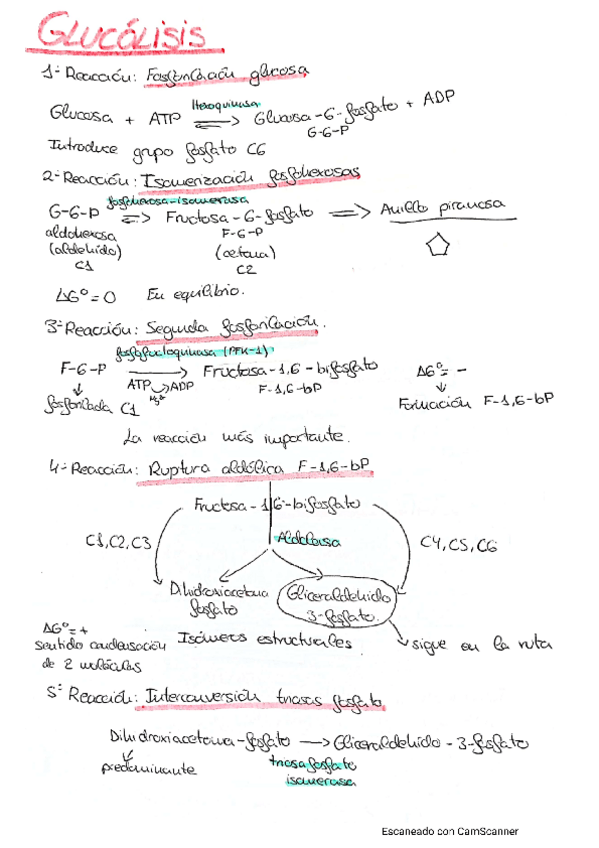 GLUCÓLISIS
1ª Reacción: Fosforilación glucosa
Hexoquinasa
Glucosa + ATP ⇌ Glucosa-6-fosfato + ADP
G-6-P
Introduce grupo fosfato C6
2ª Reacción: Isomerización fosfohexosas
fosfohexosa-isomerasa
G-6-P ⇌ Fructosa-6-fosfato ⇒ Anillo piranosa
aldohexosa F-6-P
(aldehido) (cetona)
C1 C2
ΔGº = 0 En equilibrio.
3ª Reacción: Segunda fosforilación.
fosfofructoquinasa (PFK-1)
F-6-P → Fructosa-1,6-bifosfato ΔGº = -
ATP ADP F-1,6-bP
Mg²⁺
fosforilada C1 Formación F-1,6-bP
La reacción más importante.
4ª Reacción: Ruptura aldólica F-1,6-bP
Fructosa-1,6-bifosfato
C1, C2, C3 Aldolasa C4, C5, C6
Dihidroxiacetona Gliceraldehido
fosfato 3-fosfato.
ΔGº = +
sentido condensación Isómeros estructurales sigue en la ruta
de 2 moléculas
5ª Reacción: Interconversión triosas fosfato
Dihidroxiacetona-fosfato → Gliceraldehido-3-fosfato
predominante triosa fosfato
isomerasa
Escaneado con CamScanner